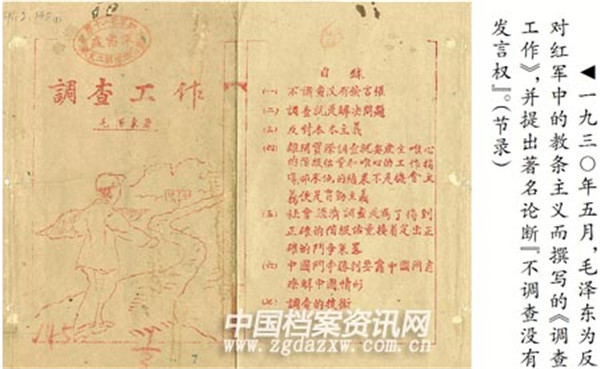 調查工作
毛澤東著
145
目錄
(一) 不調查沒有發言權
(二) 調查就是解決問題
(三) 反對本本主義
(四) 離開實際調查就要產生唯心
的階級估量和唯心的工作指
導那末他的結果不是機會主
義便是盲動主義
(五) 社會經濟調查是為了得到
正確的階級估量接着定出正
確的鬥爭策略
(六) 中國鬥爭勝利要靠中國同志
瞭解中國情形
(七) 調查的技術
◀一九三〇年五月,毛泽东为反
对红军中的教条主义而撰写的《调查
工作》,并提出著名论断『不调查没有
发言权』。(节录)
中国档案资讯网
www.zgdazxw.com.cn